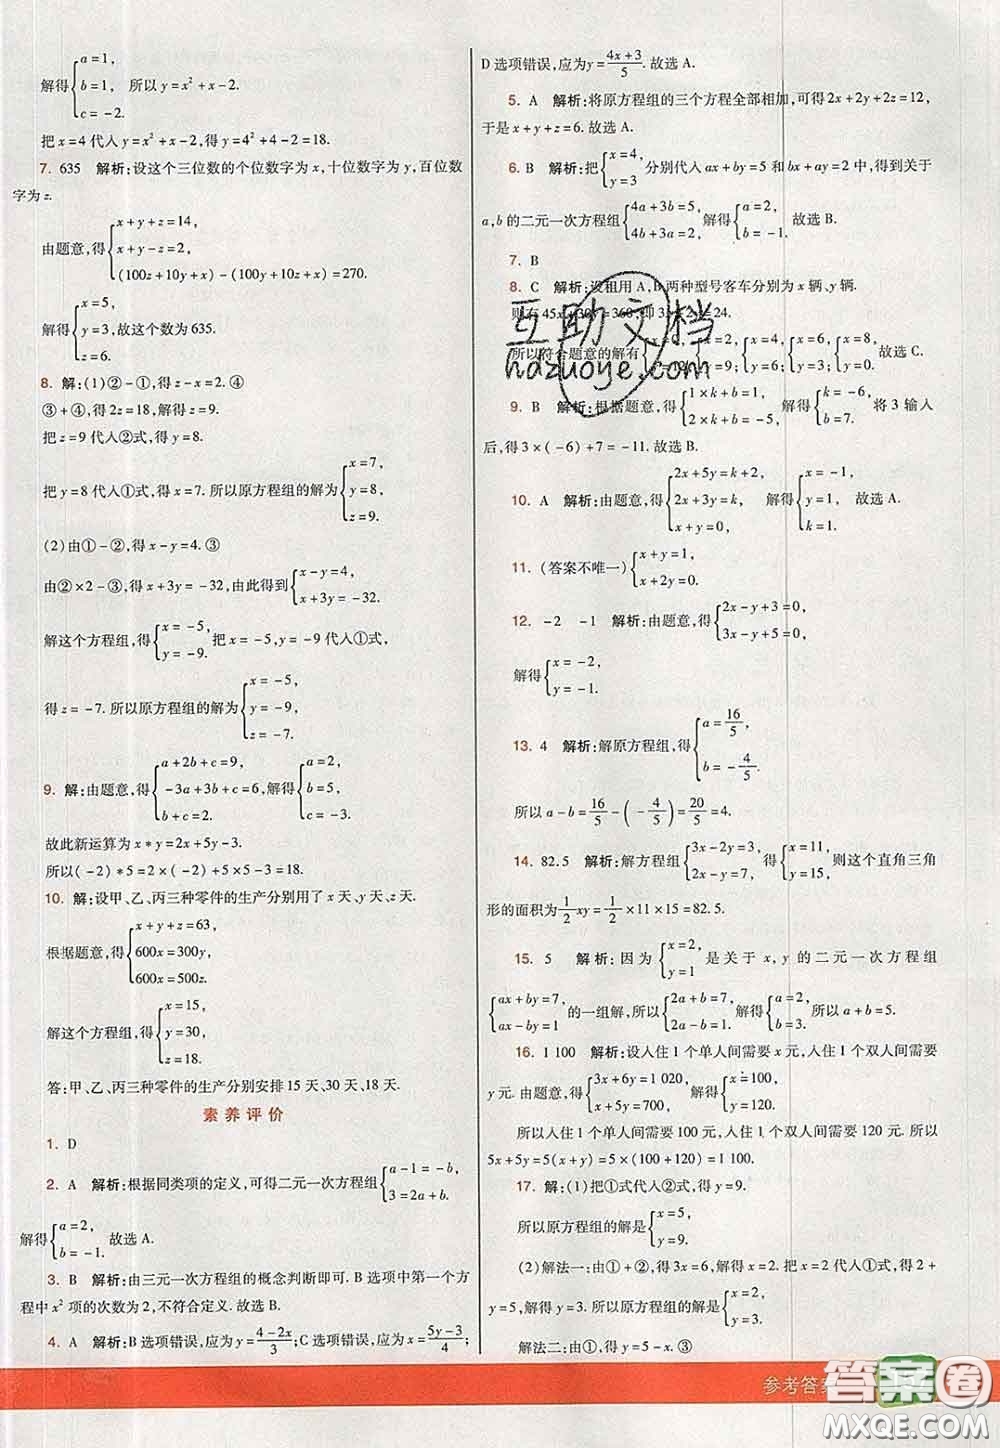 解得{a=1, b=1, c=-2. 所以 y=x²+x-2.
把 x=4 代入 y=x²+x-2,得 y=4²+4-2=18.
7. 635 解析:设这个三位数的个位数字为 x,十位数字为 y,百位数
字为 z.
由题意,得{x+y+z=14, x+y-z=2, (100z+10y+x)-(100x+10y+z)=270.
解得{x=5, y=3, z=6. 故这个数为 635.
8. 解:(1)②-①,得 z-x=2. ④
③+④,得 2z=18,解得 z=9.
把 z=9 代入②式,得 y=8.
把 y=8 代入①得 x=7. 所以原方程组的解为{x=7, y=8, z=9.
(2)由①-②,得 x-y=4. ③
由②×2-③,得 x+3y=-32,由此得到{x-y=4, x+3y=-32.
解这个方程组,得{x=-5, y=-9. 把 x=-5,y=-9 代入①式,
得 z=-7. 所以原方程组的解为{x=-5, y=-9, z=-7.
9. 解:由题意,得{a+2b+c=9, -3a+3b+c=6, b+c=2. 解得{a=2, b=5, c=-3.
故此新运算为 x*y=2x+5y-3.
所以(-2)*5=2×(-2)+5×5-3=18.
10. 解:设甲、乙、丙三种零件的生产分别用了 x 天、y 天、z 天.
根据题意,得{x+y+z=63, 600x=300y, 600x=500z.
解这个方程组,得{x=15, y=30, z=18.
答:甲、乙、丙三种零件的生产分别安排 15 天、30 天、18 天.
素养评价
1. D
2. A 解析:根据同类项的定义,可得二元一次方程组{a-1=-b, 3=2a+b.
解得{a=2, b=-1. 故选 A.
3. B 解析:由三元一次方程组的概念判断即可. B 选项中第一个方
程中 x² 项的次数为 2,不符合定义. 故选 B.
4. A 解析:B 选项错误,应为 y=(4-2x)/3;C 选项错误,应为 x=(5y-3)/4;
D 选项错误,应为 y=(4x+3)/5. 故选 A.
5. A 解析:将原方程组的三个方程全部相加,可得 2x+2y+2z=12,
于是 x+y+z=6. 故选 A.
6. B 解析:把{x=4, y=3 分别代入 ax+by=5 和 bx+ay=2 中,得到关于
a,b 的二元一次方程组{4a+3b=5, 4b+3a=2. 解得{a=2, b=-1. 故选 B.
7. B
8. C 解析:设租用 A,B 两种型号客车分别为 x 辆、y 辆.
则有 45x+30y=360,即 3x+2y=24.
所以符合题意的解有 {x=2, y=9; {x=4, y=6; {x=6, y=3; {x=8, y=0. 故选 C.
9. B 解析:根据题意,得{1×k+b=1, 2×k+b=-5, 解得{k=-6, b=7. 将 3 输入
后,得 3×(-6)+7=-11. 故选 B.
10. A 解析:由题意,得{2x+5y=k+2, 2x+3y=k, x+y=0, 解得{x=-1, y=1, k=1. 故选 A.
11. (答案不唯一){x+y=1, x+2y=0.
12. -2 -1 解析:由题意,得{2x-y+3=0, 3x-y+5=0.
解得{x=-2, y=-1.
13. 4 解析:解原方程组,得{a=16/5, b=-4/5.
所以 a-b=16/5-(-4/5)=20/5=4.
14. 82.5 解析:解方程组{3x-2y=3, 2x-y=7, 得{x=11, y=15. 则这个直角三角
形的面积为 1/2xy=1/2×11×15=82.5.
15. 5 解析:因为{x=2, y=1 是关于 x,y 的二元一次方程组
{ax+by=7, ax-by=1 的一组解,所以{2a+b=7, 2a-b=1. 解得{a=2, b=3. 所以 a+b=5.
16. 1 100 解析:设入住 1 个单人间需要 x 元,入住 1 个双人间需要
y 元. 由题意,得{3x+6y=1 020, x+5y=700, 解得{x=100, y=120.
所以入住 1 个单人间需要 100 元,入住 1 个双人间需要 120 元. 所以
5x+5y=5(x+y)=5×(100+120)=1 100.
17. 解:(1)把①式代入②式,得 y=9.
所以原方程组的解是{x=5, y=9.
(2)解法一:由①+②,得 3x=6,解得 x=2. 把 x=2 代入①式,得 2+
y=5,解得 y=3. 所以原方程组的解是{x=2, y=3.
解法二:由①,得 y=5-x. ③
参考答案
互助文档
hdzuoye.com
答案圈
MXQE.COM